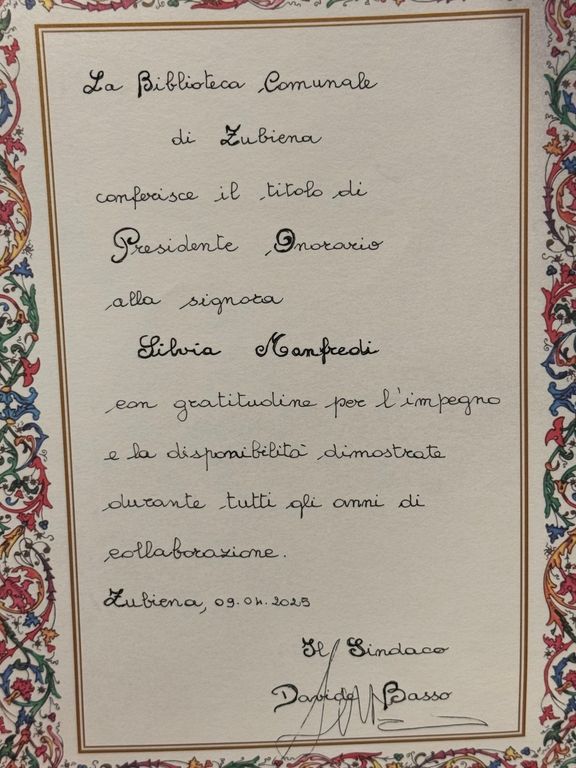 La Biblioteca Comunale
di Zubiena
conferisce il titolo di
Presidente Onorario
alla signora
Silvia Manfredi
con gratitudine per l'impegno
e la disponibilità dimostrate
durante tutti gli anni di
collaborazione.
Zubiena, 09.04.2025
Il Sindaco
Davide Basso